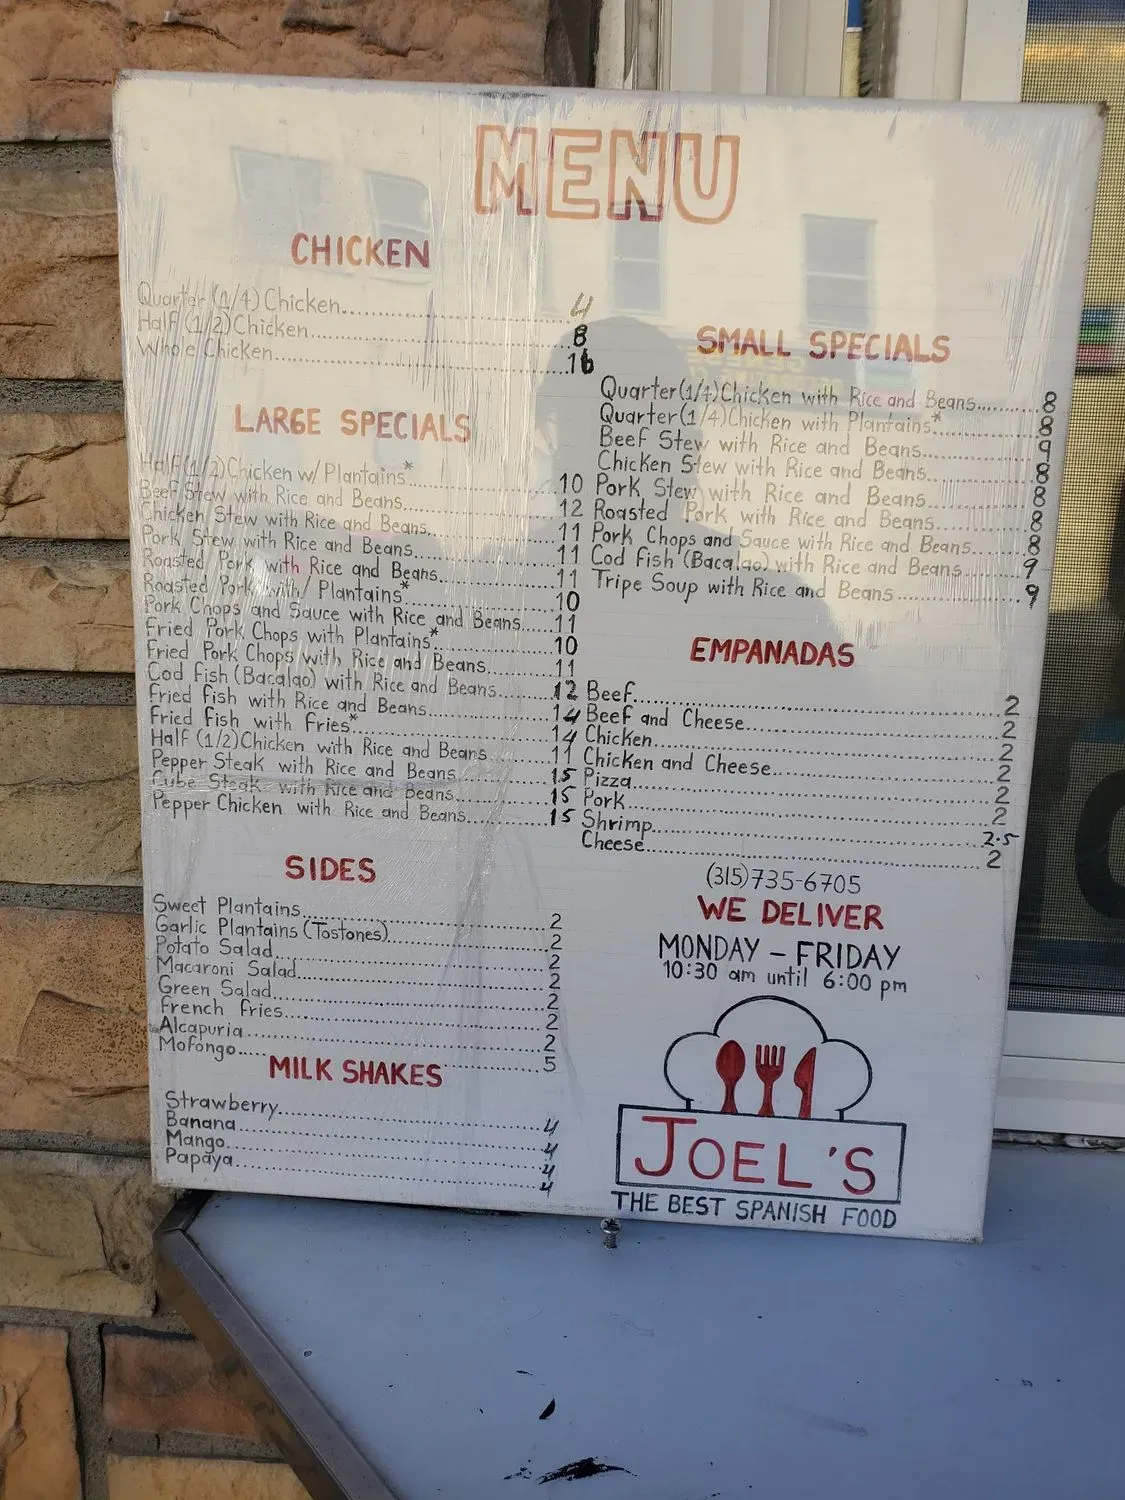 MENU
CHICKEN
Quarter (1/4) Chicken....................4
Half (1/2) Chicken....................8
Whole Chicken....................16
LARGE SPECIALS
Half (1/2) Chicken w/ Plantains*....................10
Beef Stew with Rice and Beans....................12
Chicken Stew with Rice and Beans....................11
Pork Stew with Rice and Beans....................11
Roasted Pork with Rice and Beans....................11
Roasted Pork with/ Plantains*....................10
Pork Chops and Sauce with Rice and Beans......11
Fried Pork Chops with Plantains*....................10
Fried Pork Chops with Rice and Beans............11
Cod Fish (Bacalao) with Rice and Beans..........12
Fried Fish with Rice and Beans....................14
Fried Fish with Fries*....................14
Half (1/2) Chicken with Rice and Beans..........11
Pepper Steak with Rice and Beans..............15
Cube Steak with Rice and Beans..............15
Pepper Chicken with Rice and Beans..............15
SIDES
Sweet Plantains....................2
Garlic Plantains (Tostones)....................2
Potato Salad....................2
Macaroni Salad....................2
Green Salad....................2
French Fries....................2
Alcapuria....................2
Mofongo....................5
MILK SHAKES
Strawberry....................4
Banana....................4
Mango....................4
Papaya....................4
SMALL SPECIALS
Quarter (1/4) Chicken with Rice and Beans........8
Quarter (1/4) Chicken with Plantains*............8
Beef Stew with Rice and Beans............9
Chicken Stew with Rice and Beans............8
Pork Stew with Rice and Beans............8
Roasted Pork with Rice and Beans............8
Pork Chops and Sauce with Rice and Beans......8
Cod Fish (Bacalao) with Rice and Beans......9
Tripe Soup with Rice and Beans............9
EMPANADAS
Beef....................2
Beef and Cheese....................2
Chicken....................2
Chicken and Cheese....................2
Pizza....................2
Pork....................2
Shrimp....................2.5
Cheese....................2
(315)735-6705
WE DELIVER
MONDAY – FRIDAY
10:30 am until 6:00 pm
JOEL'S
THE BEST SPANISH FOOD